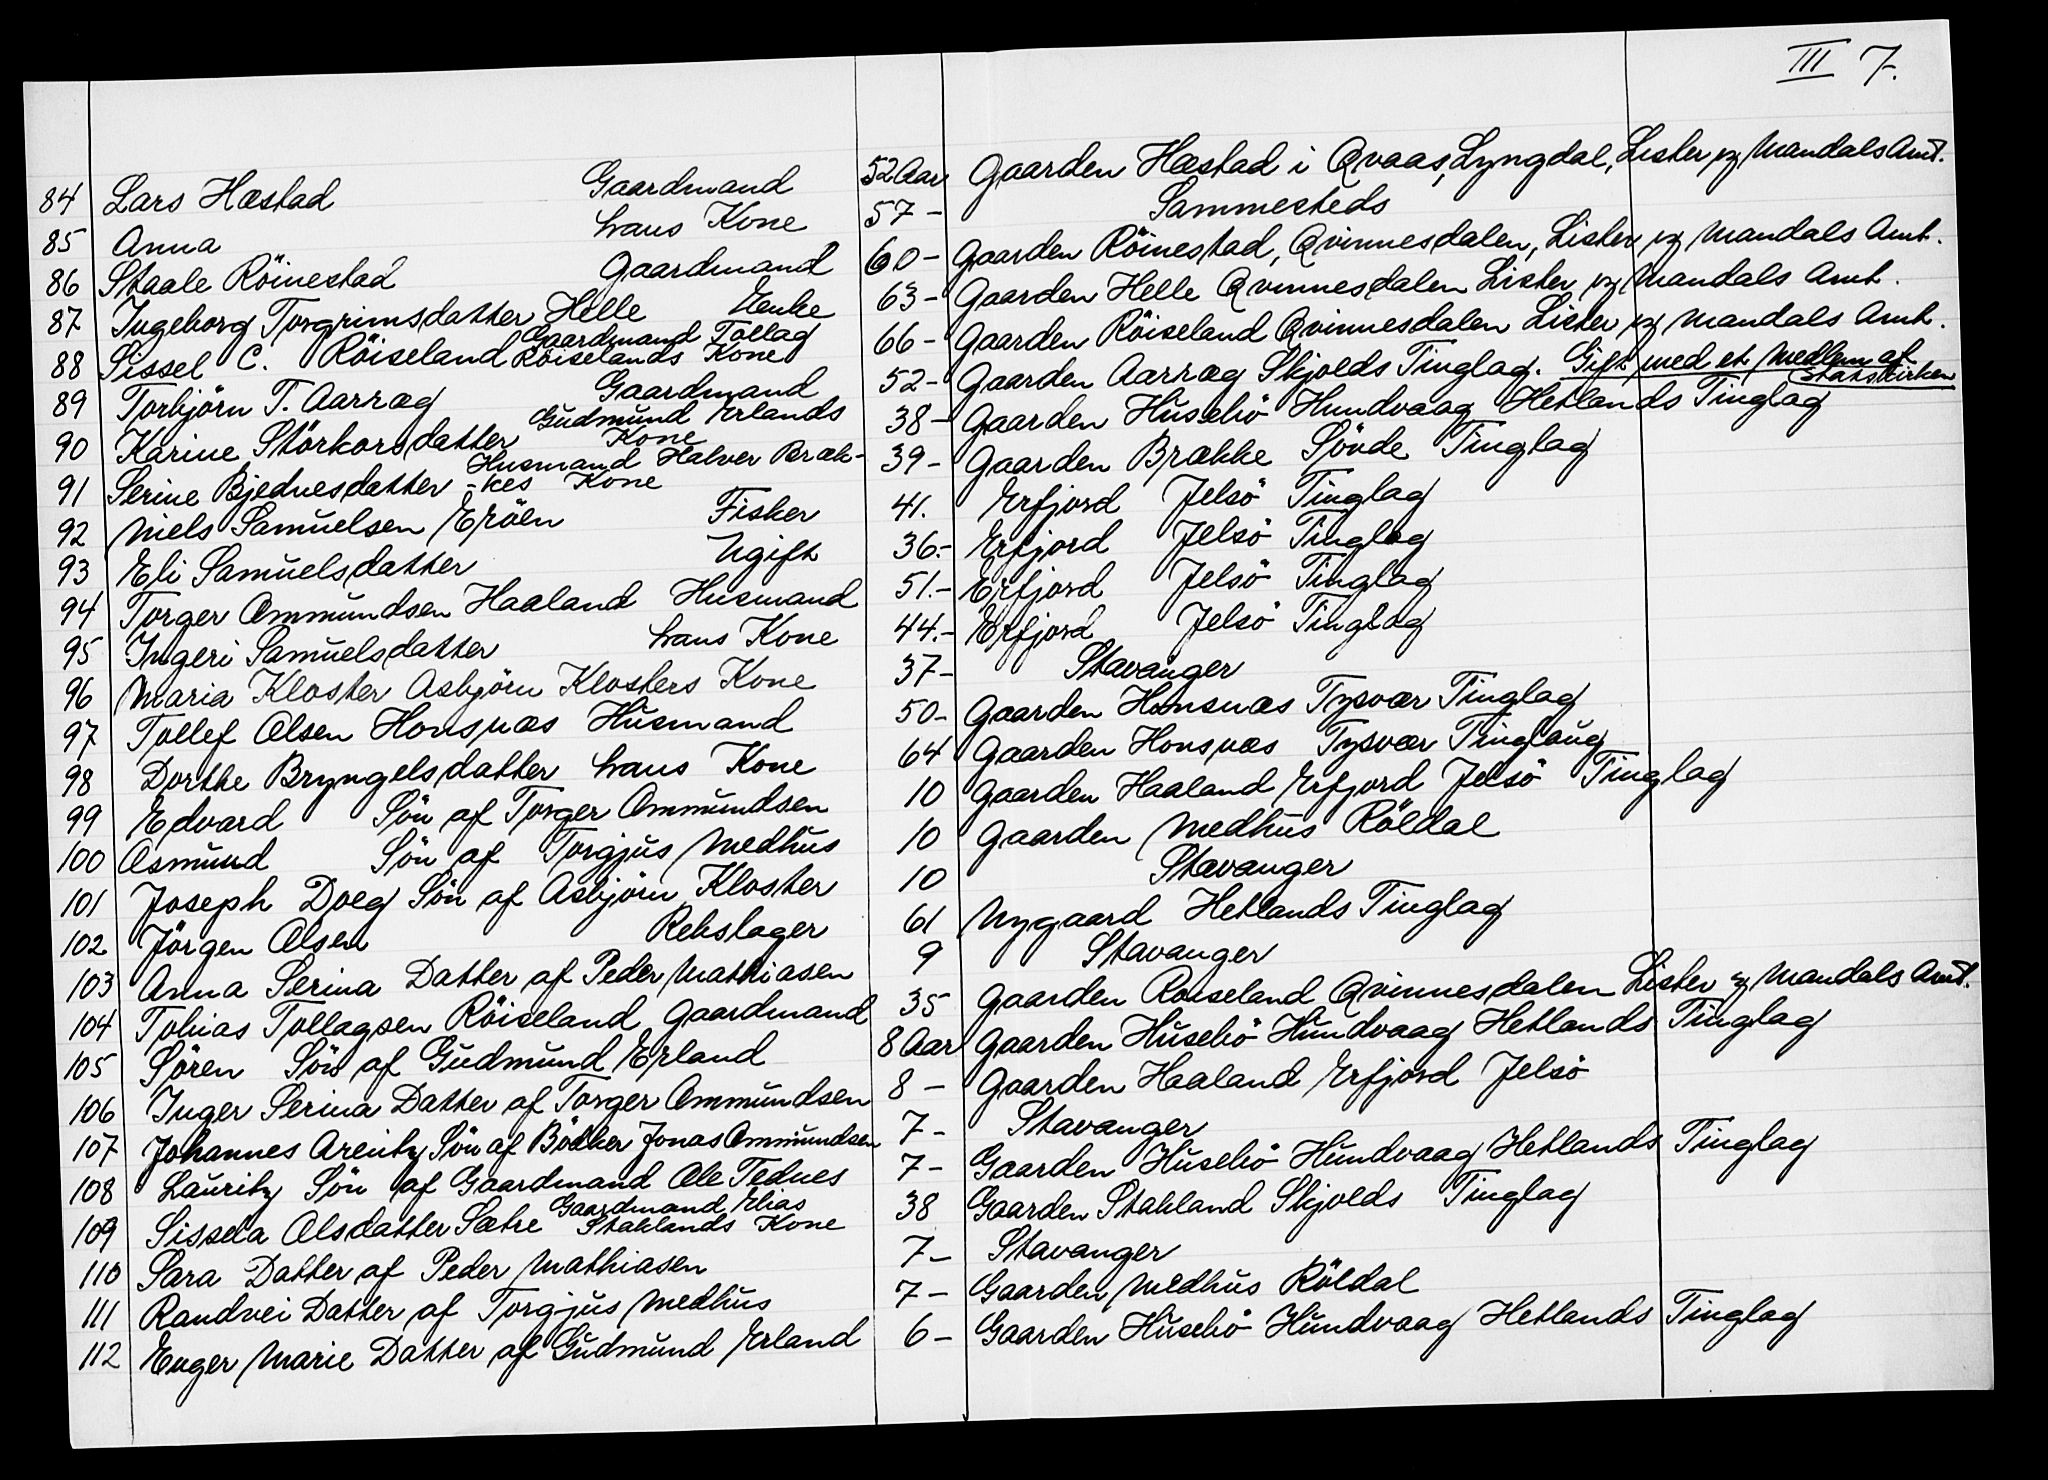 III 7.
84 Lars Hæstad Gaardmand 52 Aar Gaarden Hæstad i Qvaas, Lyngdal, Lister og Mandals Amt.
85 Anna hans Kone 57 - Sammesteds
86 Staale Röinestad Gaardmand 60 - Gaarden Röinestad, Qvinnesdalen, Lister og Mandals Amt.
87 Ingeborg Torgrimsdatter Helle Enke 63 - Gaarden Helle Qvinnesdalen Lister og Mandals Amt.
88 Sissel C. Röiseland Gaardmand Tollag Röiselands Kone 66 - Gaarden Röiseland Qvinnesdalen Lister og Mandals Amt.
89 Torbjörn T. Aarræg Gaardmand 52 - Gaarden Aarræg Skjolds Tinglag. Gift med et Medlem af Statskirken
90 Karine Störkorsdatter Gudmund Erlands Kone 38 - Gaarden Husebö Hundvaag Hetlands Tinglag
91 Serine Bjednesdatter Husmand Halver Bræk-kes Kone 39 - Gaarden Brække Sövde Tinglag
92 Niels Samuelsen Eröen Fisker 41. Erfjord Jelsö Tinglag
93 Eli Samuelsdatter Ugift 36.- Erfjord Jelsö Tinglag
94 Torger Ommundsen Haaland Husmand 51.- Erfjord Jelsö Tinglag
95 Ingeri Samuelsdatter hans Kone 44.- Erfjord Jelsö Tinglag
96 Maria Kloster Asbjörn Klosters Kone 37- Stavanger
97 Tollef Olsen Honsnæs Husmand 50- Gaarden Honsnæs Tysvær Tinglag
98 Dorthe Bryngelsdatter hans Kone 64 Gaarden Honsnæs Tysvær Tinglaug
99 Edvard Sön af Torger Ommundsen 10 Gaarden Haaland Erfjord Jelsö Tinglag
100 Osmund Sön af Torgjus Medhus 10 Gaarden Medhus Röldal
101 Joseph Doeg Sön af Asbjörn Kloster 10 Stavanger
102 Jörgen Olsen Rebslager 61 Nygaard Hetlands Tinglag
103 Anna Serina Datter af Peder Mathiasen 9 Stavanger
104 Tobias Tollagsen Röiseland Gaardmand 35 Gaarden Roiseland Qvinnesdalen Lister og Mandals Amt.
105 Sören Sön af Gudmund Erland 8 Aar Gaarden Husebö Hundvaag Hetlands Tinglag
106 Inger Serina Datter af Torger Ommundsen 8 - Gaarden Haaland Erfjord Jelsö
107 Johannes Arentz Sön af Bödker Jonas Ommundsen 7 - Stavanger
108 Lauritz Sön af Gaardmand Ole Tednes 7 - Gaarden Husebö Hundvaag Hetlands Tinglag
109 Sissela Olsdatter Sætre Gaardmand Elias Staklands Kone 38 Gaarden Stakland Skjolds Tinglag
110 Sara Datter af Peder Mathiasen 7 - Stavanger
111 Randvei Datter af Torgjus Medhus 7 - Gaarden Medhus Röldal
112 Enger Marie Datter af Gudmund Erland 6 - Gaarden Husebö Hundvaag Hetlands Tinglag